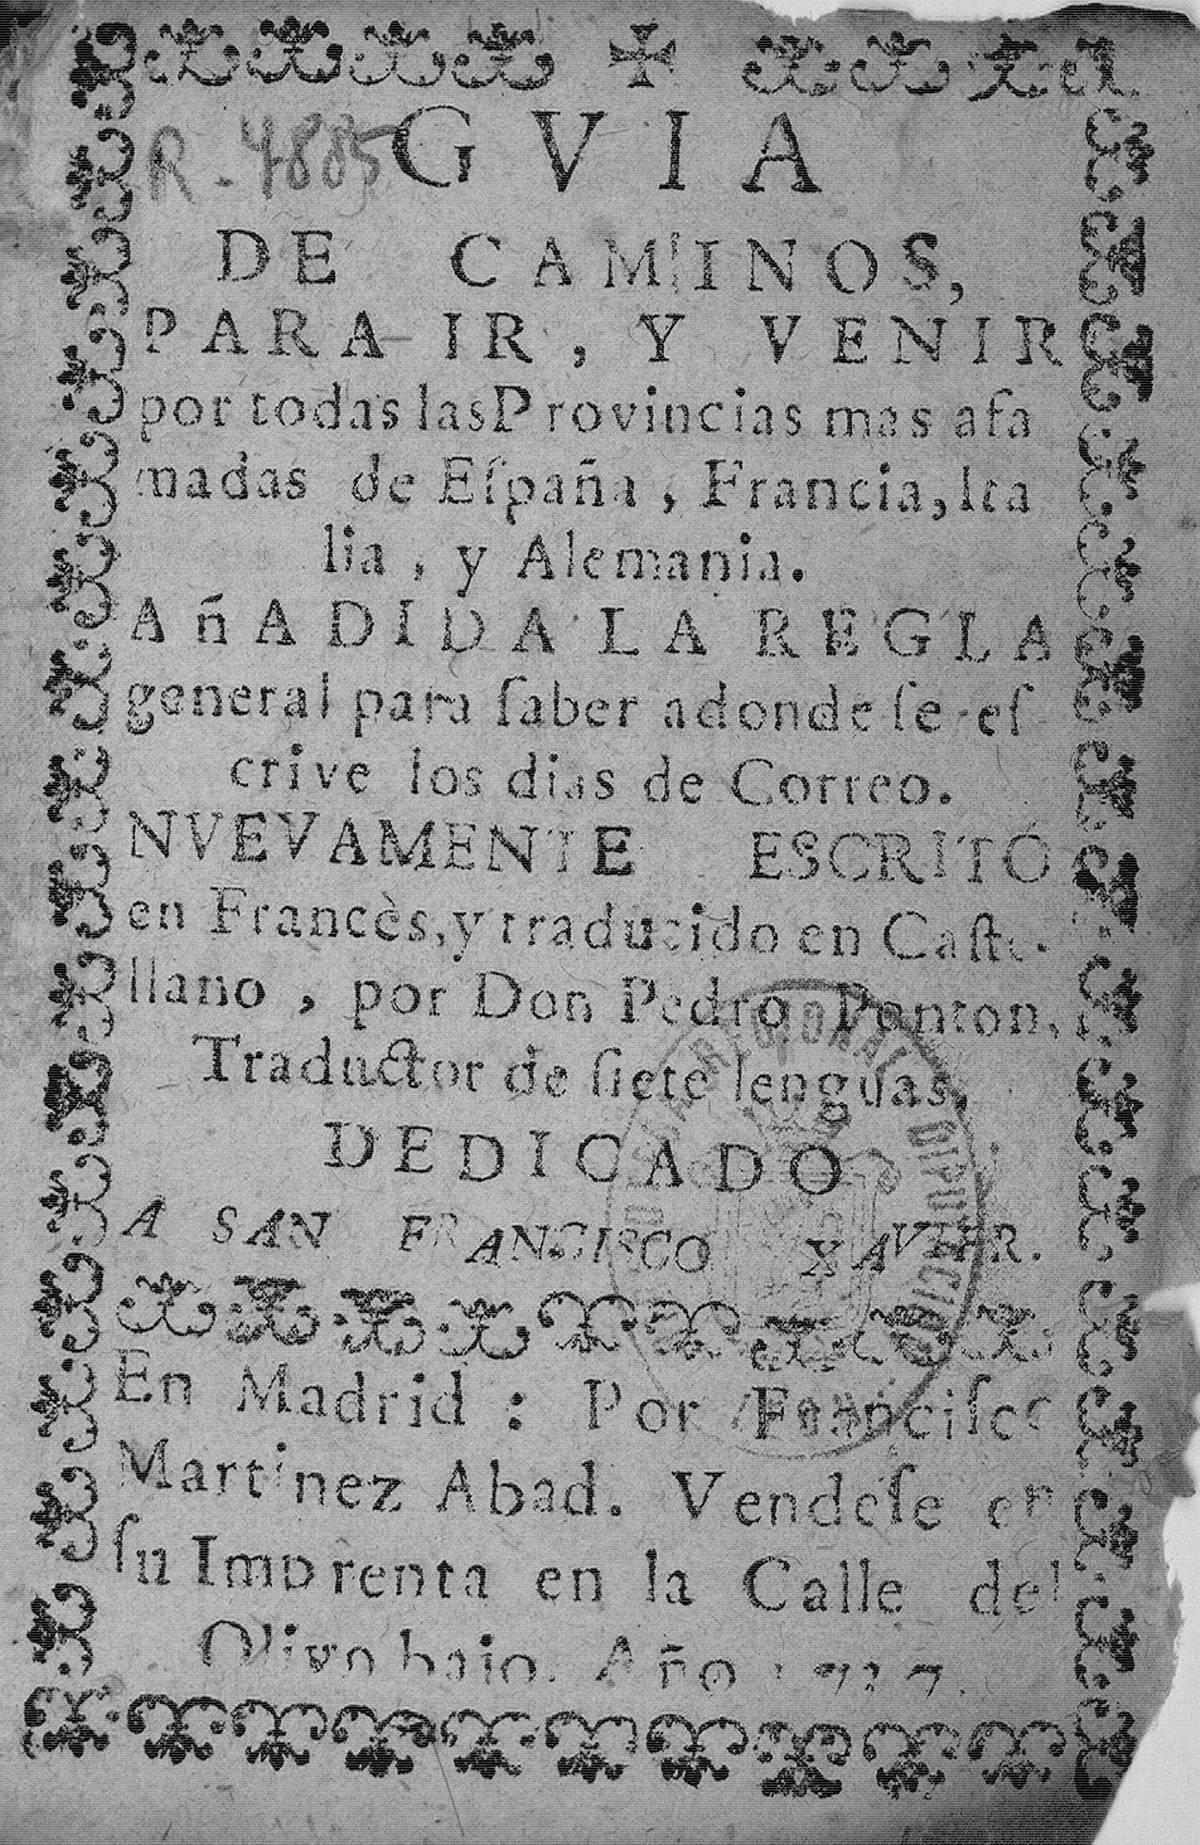 R. 4885
GVIA
DE CAMINOS,
PARA IR, Y VENIR
por todas las Provincias mas afa
madas de Eſpaña, Francia, Ita
lia, y Alemania.
AñADIDA LA REGLA
general para ſaber adonde ſe eſ
crive los dias de Correo.
NVEVAMENTE ESCRITO
en Francès, y traducido en Caſte-
llano, por Don Pedro Ponton,
Traductor de ſiete lenguas.
DEDICADO
A SAN FRANCISCO XAVIER.
En Madrid: Por Franciſco
Martinez Abad. Vendeſe en
ſu Imprenta en la Calle del
Olivo baxo. Año